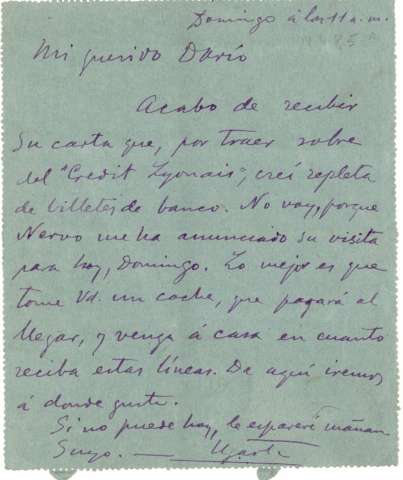 Domingo á las 11 a.m.
Mi querido Darío
Acabo de recibir
su carta que, por traer sobre
del "Credit Lyonais", creí repleta
de billetes de banco. No voy, porque
Nervo me ha anunciado su visita
para hoy, Domingo. Lo mejor es que
tome Vd. un coche, que pagará al
llegar, y venga á casa en cuanto
reciba estas líneas. De aquí iremos
á donde guste.
Si no puede hoy, le esperaré mañan
Suyo. — Ugarte